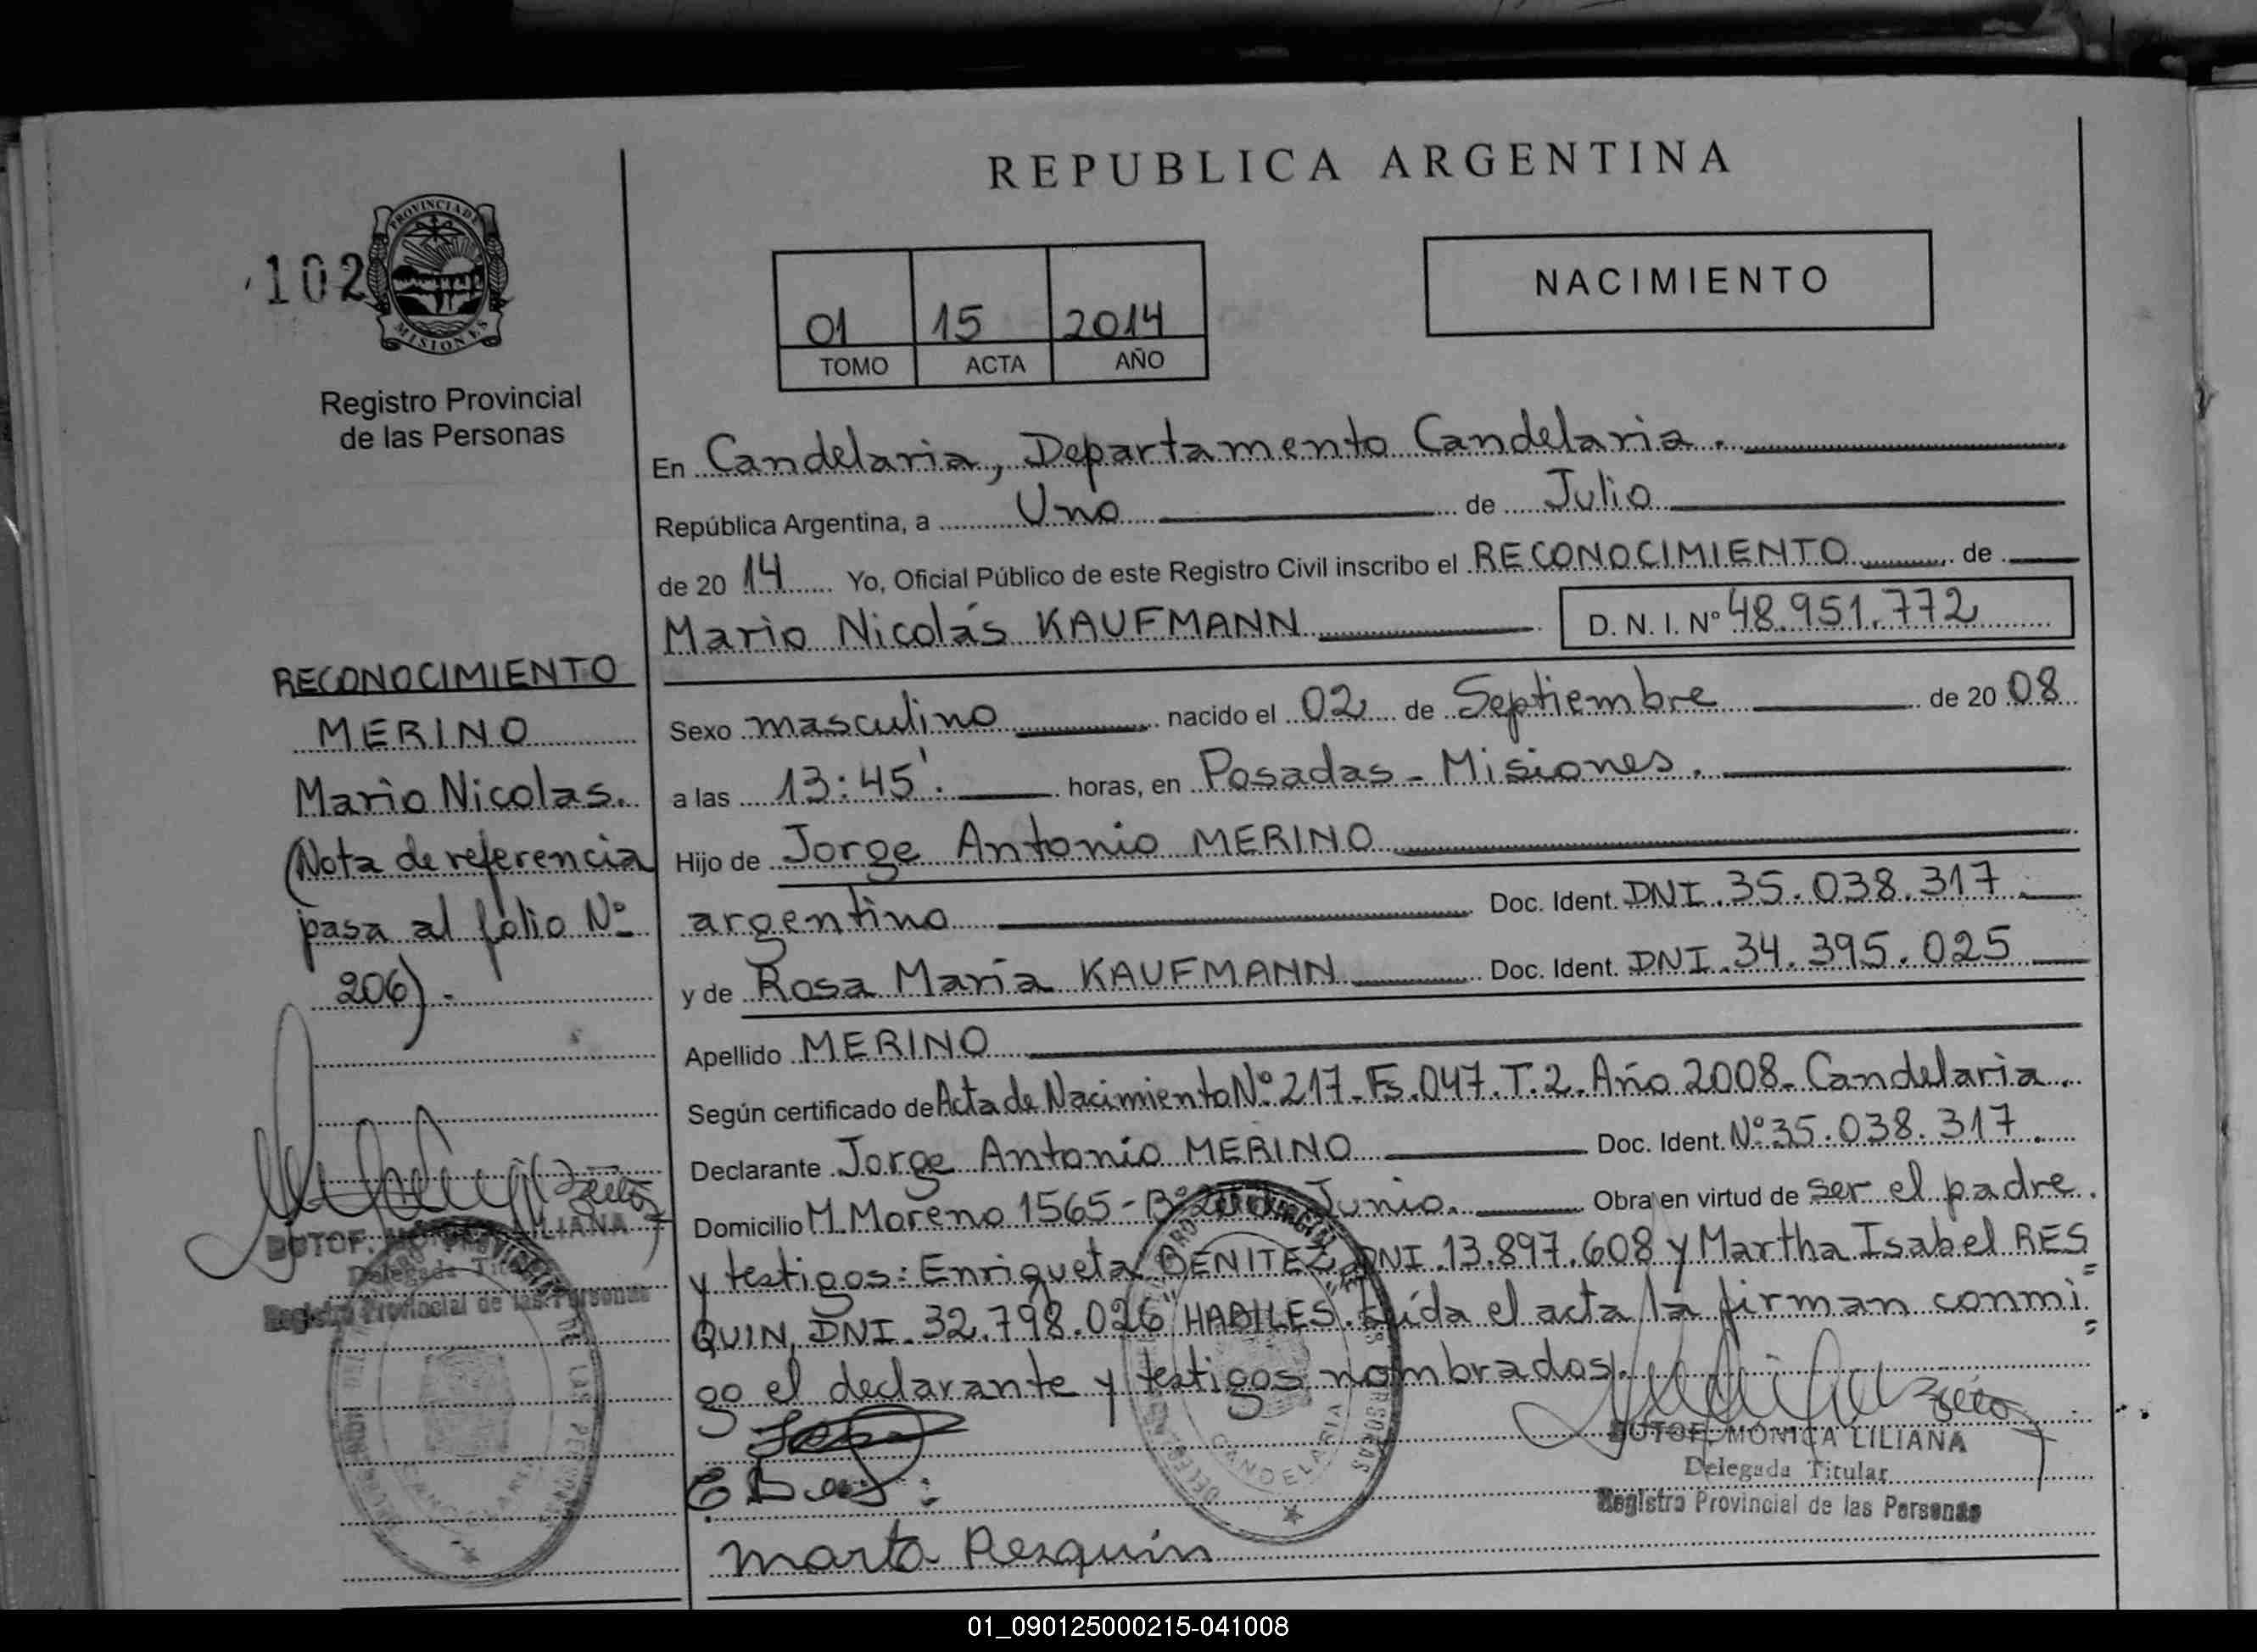 REPUBLICA ARGENTINA
102
PROVINCIA DE
MISIONES
Registro Provincial
de las Personas
01 15 2014
TOMO ACTA AÑO
NACIMIENTO
En Candelaria, Departamento Candelaria.
República Argentina, a Uno de Julio
de 20 14 Yo, Oficial Público de este Registro Civil inscribo el RECONOCIMIENTO de
Mario Nicolás KAUFMANN D. N. I. Nº 48.951.772
Sexo masculino nacido el 02 de Septiembre de 20 08
a las 13:45'. horas, en Posadas - Misiones.
Hijo de Jorge Antonio MERINO
argentino Doc. Ident. DNI. 35.038.317.
y de Rosa María KAUFMANN Doc. Ident. DNI. 34.395.025
Apellido MERINO
Según certificado de Acta de Nacimiento Nº 217-Fs.047.T.2. Año 2008- Candelaria.
Declarante Jorge Antonio MERINO Doc. Ident. Nº 35.038.317.
Domicilio M. Moreno 1565 - Bº Junio. Obra en virtud de ser el padre.
y testigos: Enriqueta BENITEZ, DNI. 13.897.608 y Martha Isabel RES=
QUIN, DNI. 32.798.026 "HABILES". Leída el acta la firman conmi=
go el declarante y testigos nombrados.
Marta Resquin
BUTOF. MÓNICA LILIANA
Delegada Titular
Registro Provincial de las Personas
RECONOCIMIENTO
MERINO
Mario Nicolas.
(Nota de referencia
pasa al folio Nº
206).-
BUTOF. MÓNICA LILIANA
Delegada Titular
Registro Provincial de las Personas
CANDELARIA
01_090125000215-041008